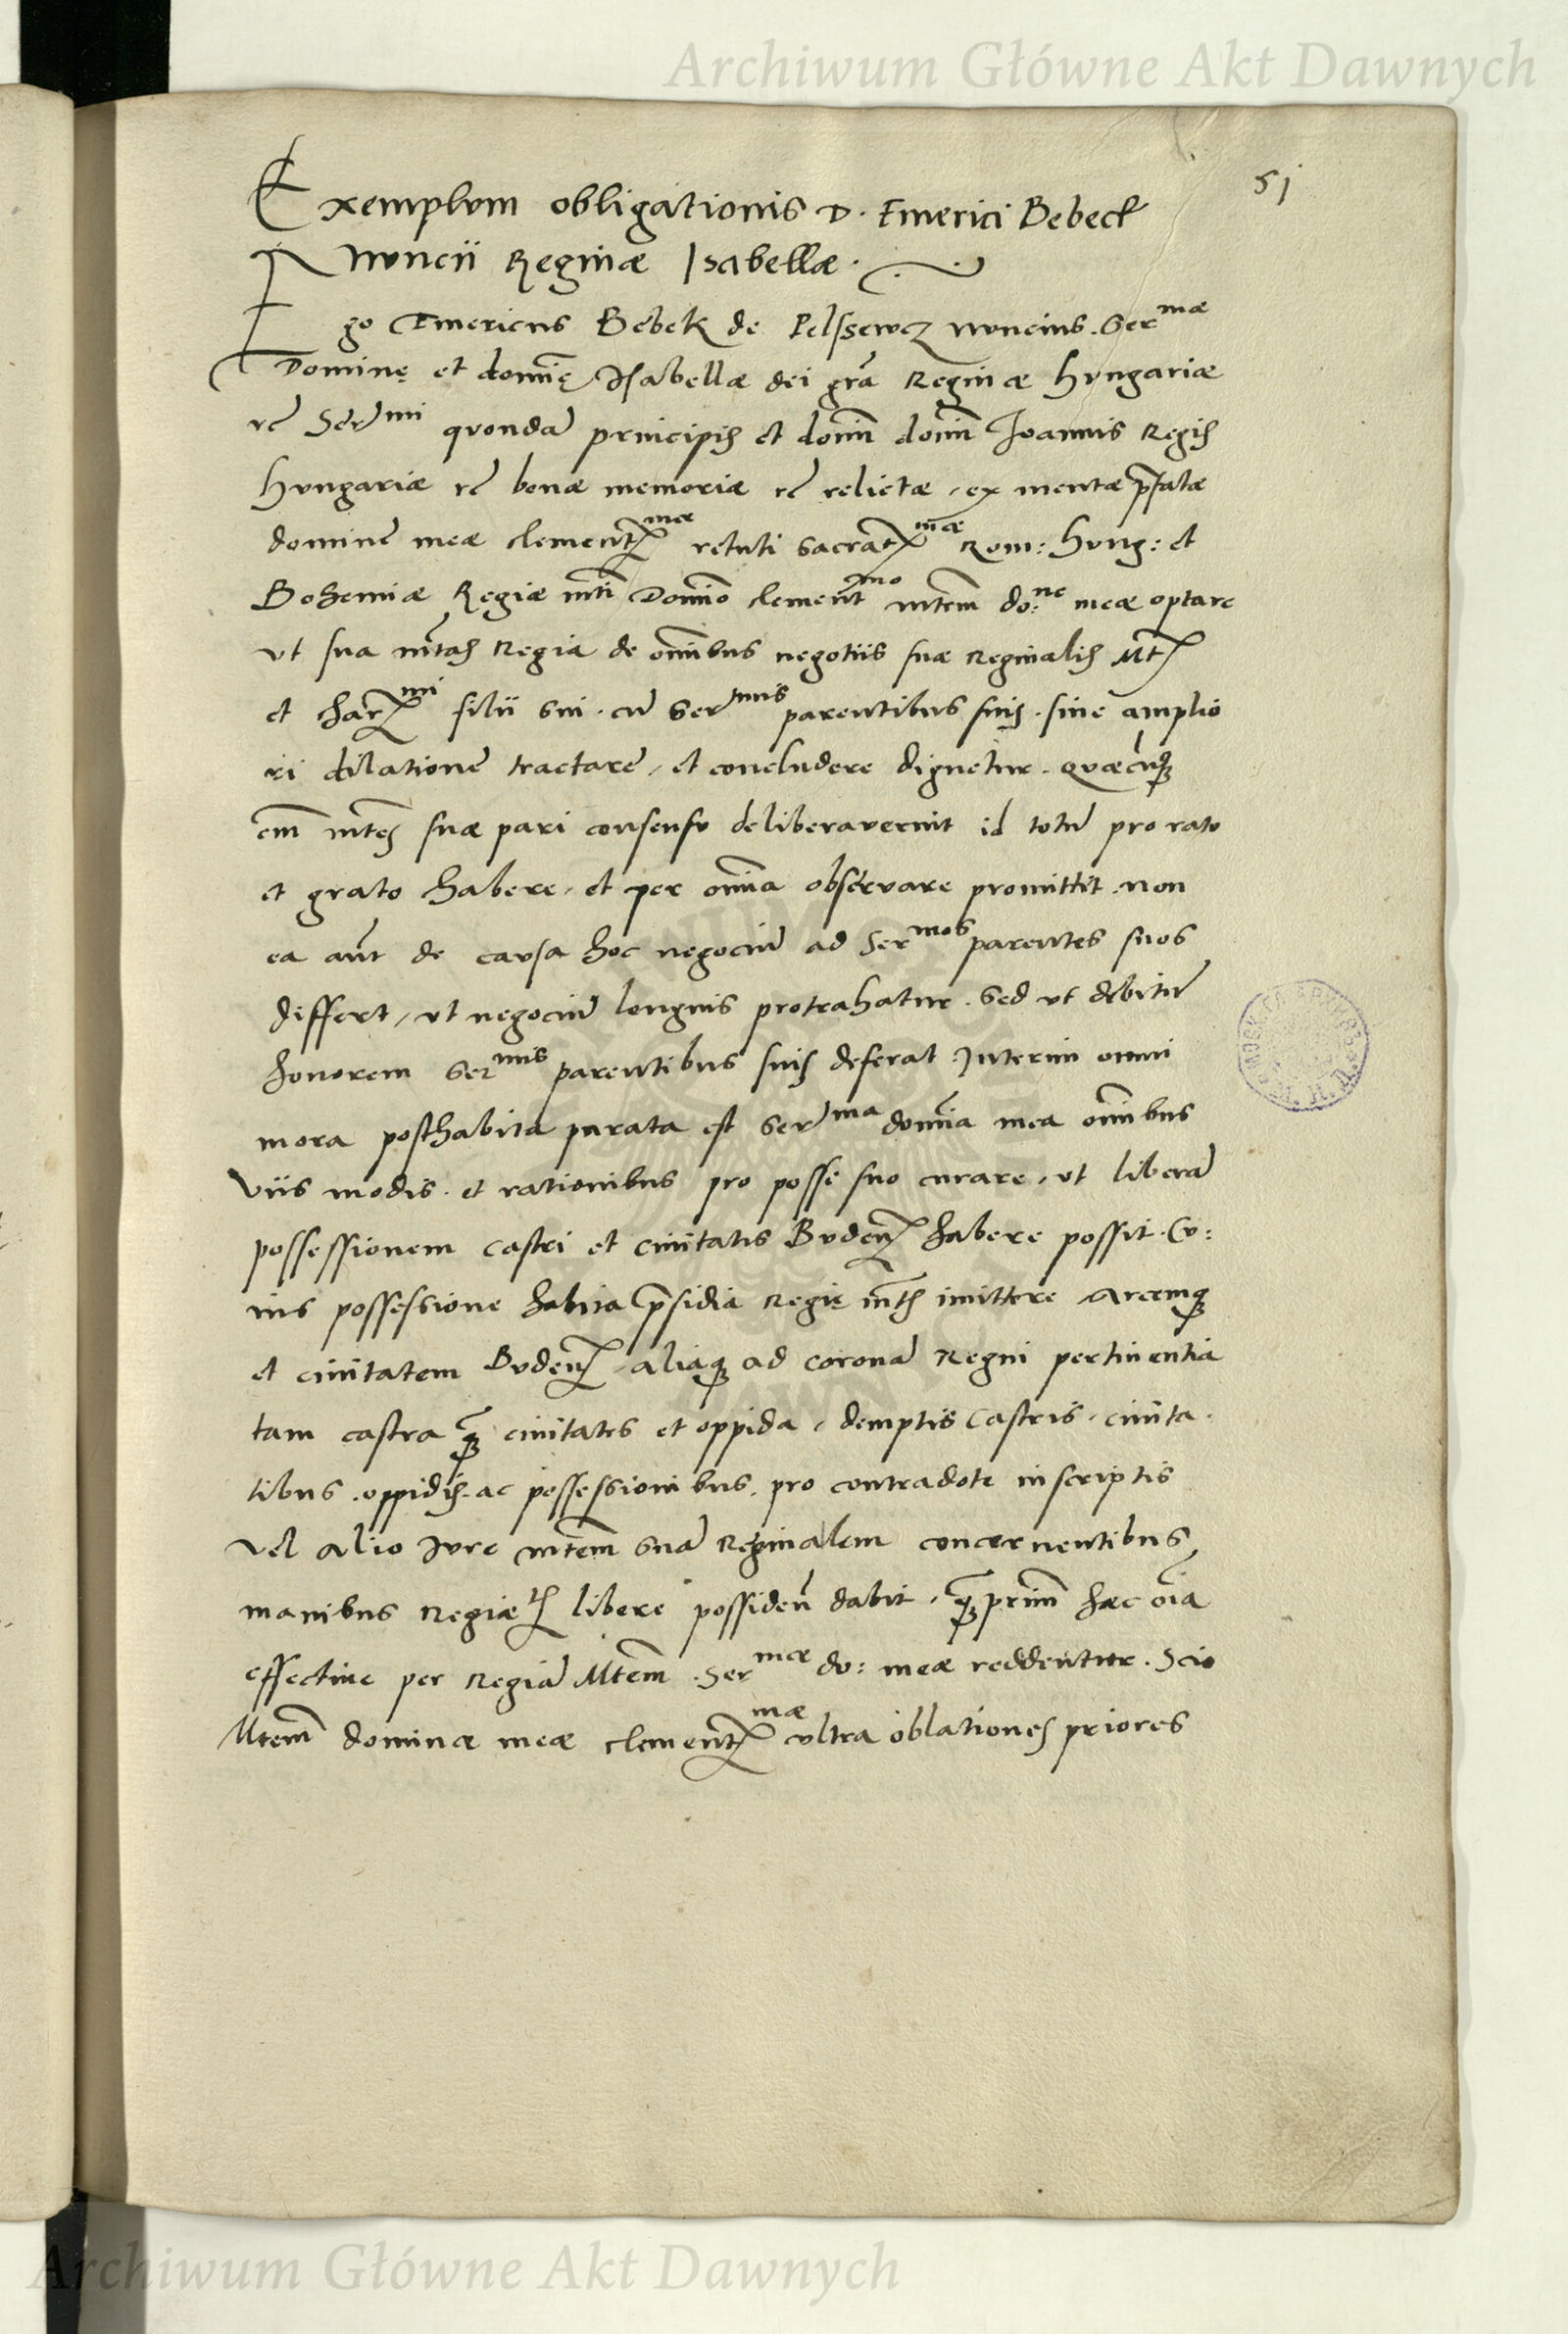 Archiwum Główne Akt Dawnych
51
Exemplum obligationis D. Emerici Bebeck
Nuncii Reginæ Isabellæ.
Ego Emericus Bebek de Pelssewcz nuncius Ser^mæ
Dominę et domĩę Isabellæ dei grã Reginæ Hungariæ
rẽ Ser^mi quondã principis et domĩ domĩ Joannis Regis
Hungariæ rẽ bonæ memoriæ rẽ relictæ, ex mente p̃fatæ
domine meæ clement^mæ retuli sacrat^mæ Rom: Hung: et
Bohemiæ Regiæ mti Domĩo clement^mo mtem do:^ne meæ optare
ut sua mtas Regia de omĩbus negotiis suæ reginalis Mt
et char^mi filii sui. cũ Ser^mis parentibus suis. sine amplio
ri dilatione tractare, et concludere dignetur. quæcũq
em̃ mtes suæ pari consensu deliberaverint id totũ pro rato
et grato habere, et per omĩa observare promittit. non
ea aũt de causa hoc negociũ ad Ser^mos parentes suos
differt, ut negociũ longius protrahatur. Sed ut debitũ
honorem Ser^mis parentibus suis deferat Interim omni
mora posthabita parata est Ser^ma domĩa mea omĩbus
Viis modis. et rationibus pro posse suo curare, ut liberã
possessionem castri et civitatis Buden̄ habere possit. Cu:
ius possessione habita p̃sidia Regię mtis imittere Arcemq
et civitatem Buden̄, aliaq ad coronã Regni pertinentia
tam castra q̃ civitates et oppida, demptis castris, civita.
tibus. oppidis. ac possessionibus. pro contradote inscriptis
Vel alio Jure mtem suã Reginalem concernentibus,
manibus Regiæ ts libere possiden̄ dabit, q̃primũ hæc oĩa
effective per Regiã Mtem Ser^mæ do: meæ reddentur. Scio
Mtem dominæ meæ clement^mæ ultra oblationes priores
Archiwum Główne Akt Dawnych